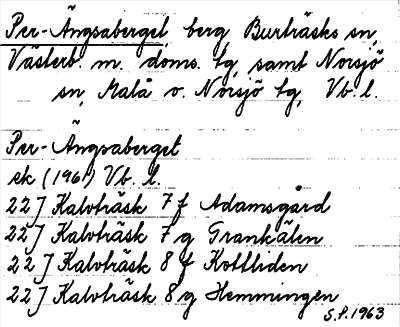 Per-Ängsaberget, berg Burträsks sn,
Västerb. m. doms. tg, samt Norsjö
sn, Malå o. Norsjö tg, Vb. l.
Per-Ängsaberget
ek (1961) Vb. l.
22J Kalvträsk 7 f Adamsgård
22J Kalvträsk 7 g Grankälen
22J Kalvträsk 8 f Kottliden
22J Kalvträsk 8 g Hemmingen
S.P. 1963